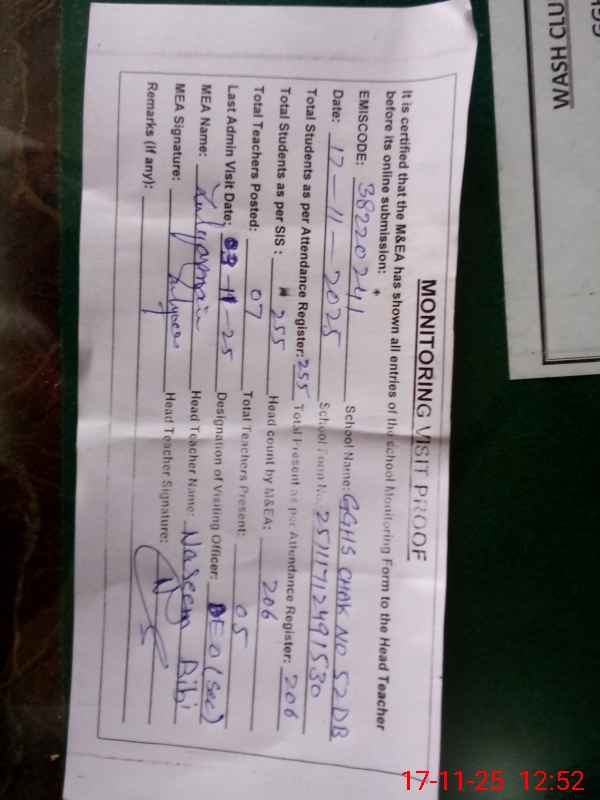 MONITORING VISIT PROOF
It is certified that the M&EA has shown all entries of the school Monitoring Form to the Head Teacher
before its online submission:
EMISCODE: 38220241 School Name: GGHS CHAK NO 52DB
Date: 17-11-2025 School Form No.
Total Students as per Attendance Register: 255 Total Present as per Attendance Register: 206
Total Students as per SIS: 255 Head count by M&EA: 206
Total Teachers Posted: 07 Total Teachers Present: 05
Last Admin Visit Date: Designation of Visiting Officer: DEO (sec)
MEA Name: Head Teacher Name: Naseem Bibi
MEA Signature: Head Teacher Signature:
Remarks (if any):
WASH CLU
17-11-25 12:52